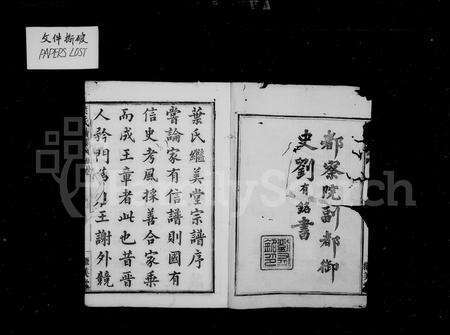 文件撕破
PAPERS LOST
都察院副都御
史劉有銘書
葉氏繼美堂宗譜序
嘗論家有信譜則國有
信史考風採善合家乘
而成王章者此也昔晉
人矜門第王謝外競
FamilySearch